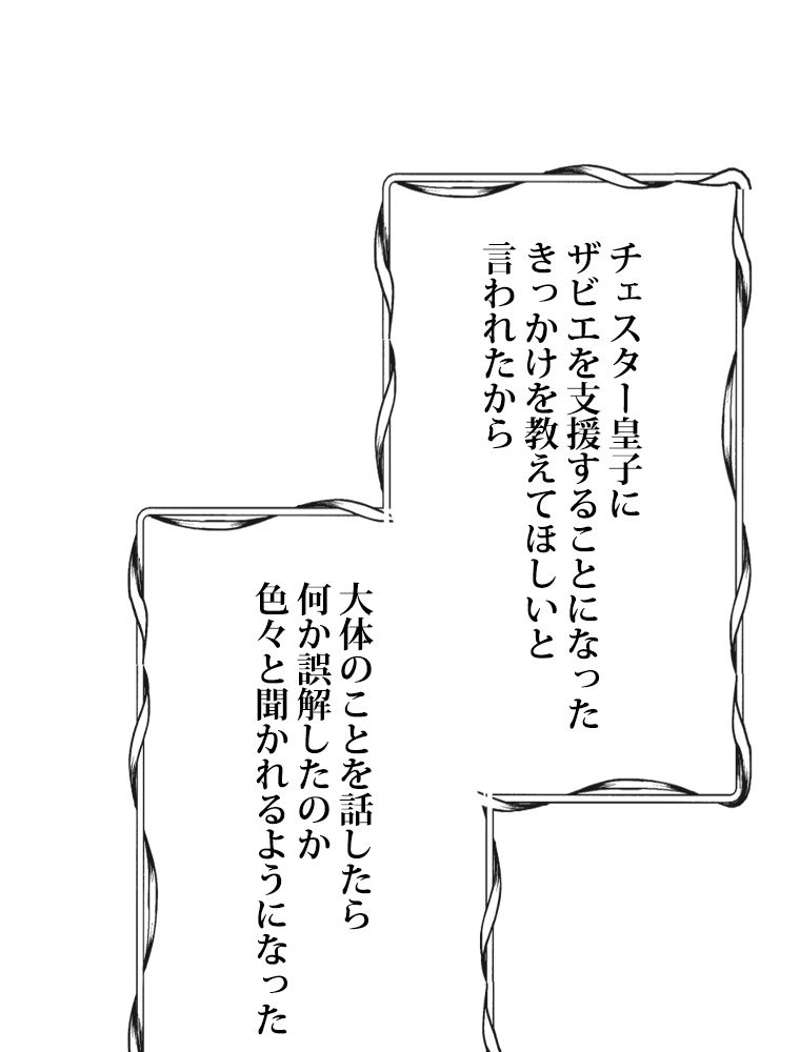 チェスター皇子に
ザビエを支援することになった
きっかけを教えてほしいと
言われたから
大体のことを話したら
何か誤解したのか
色々と聞かれるようになった